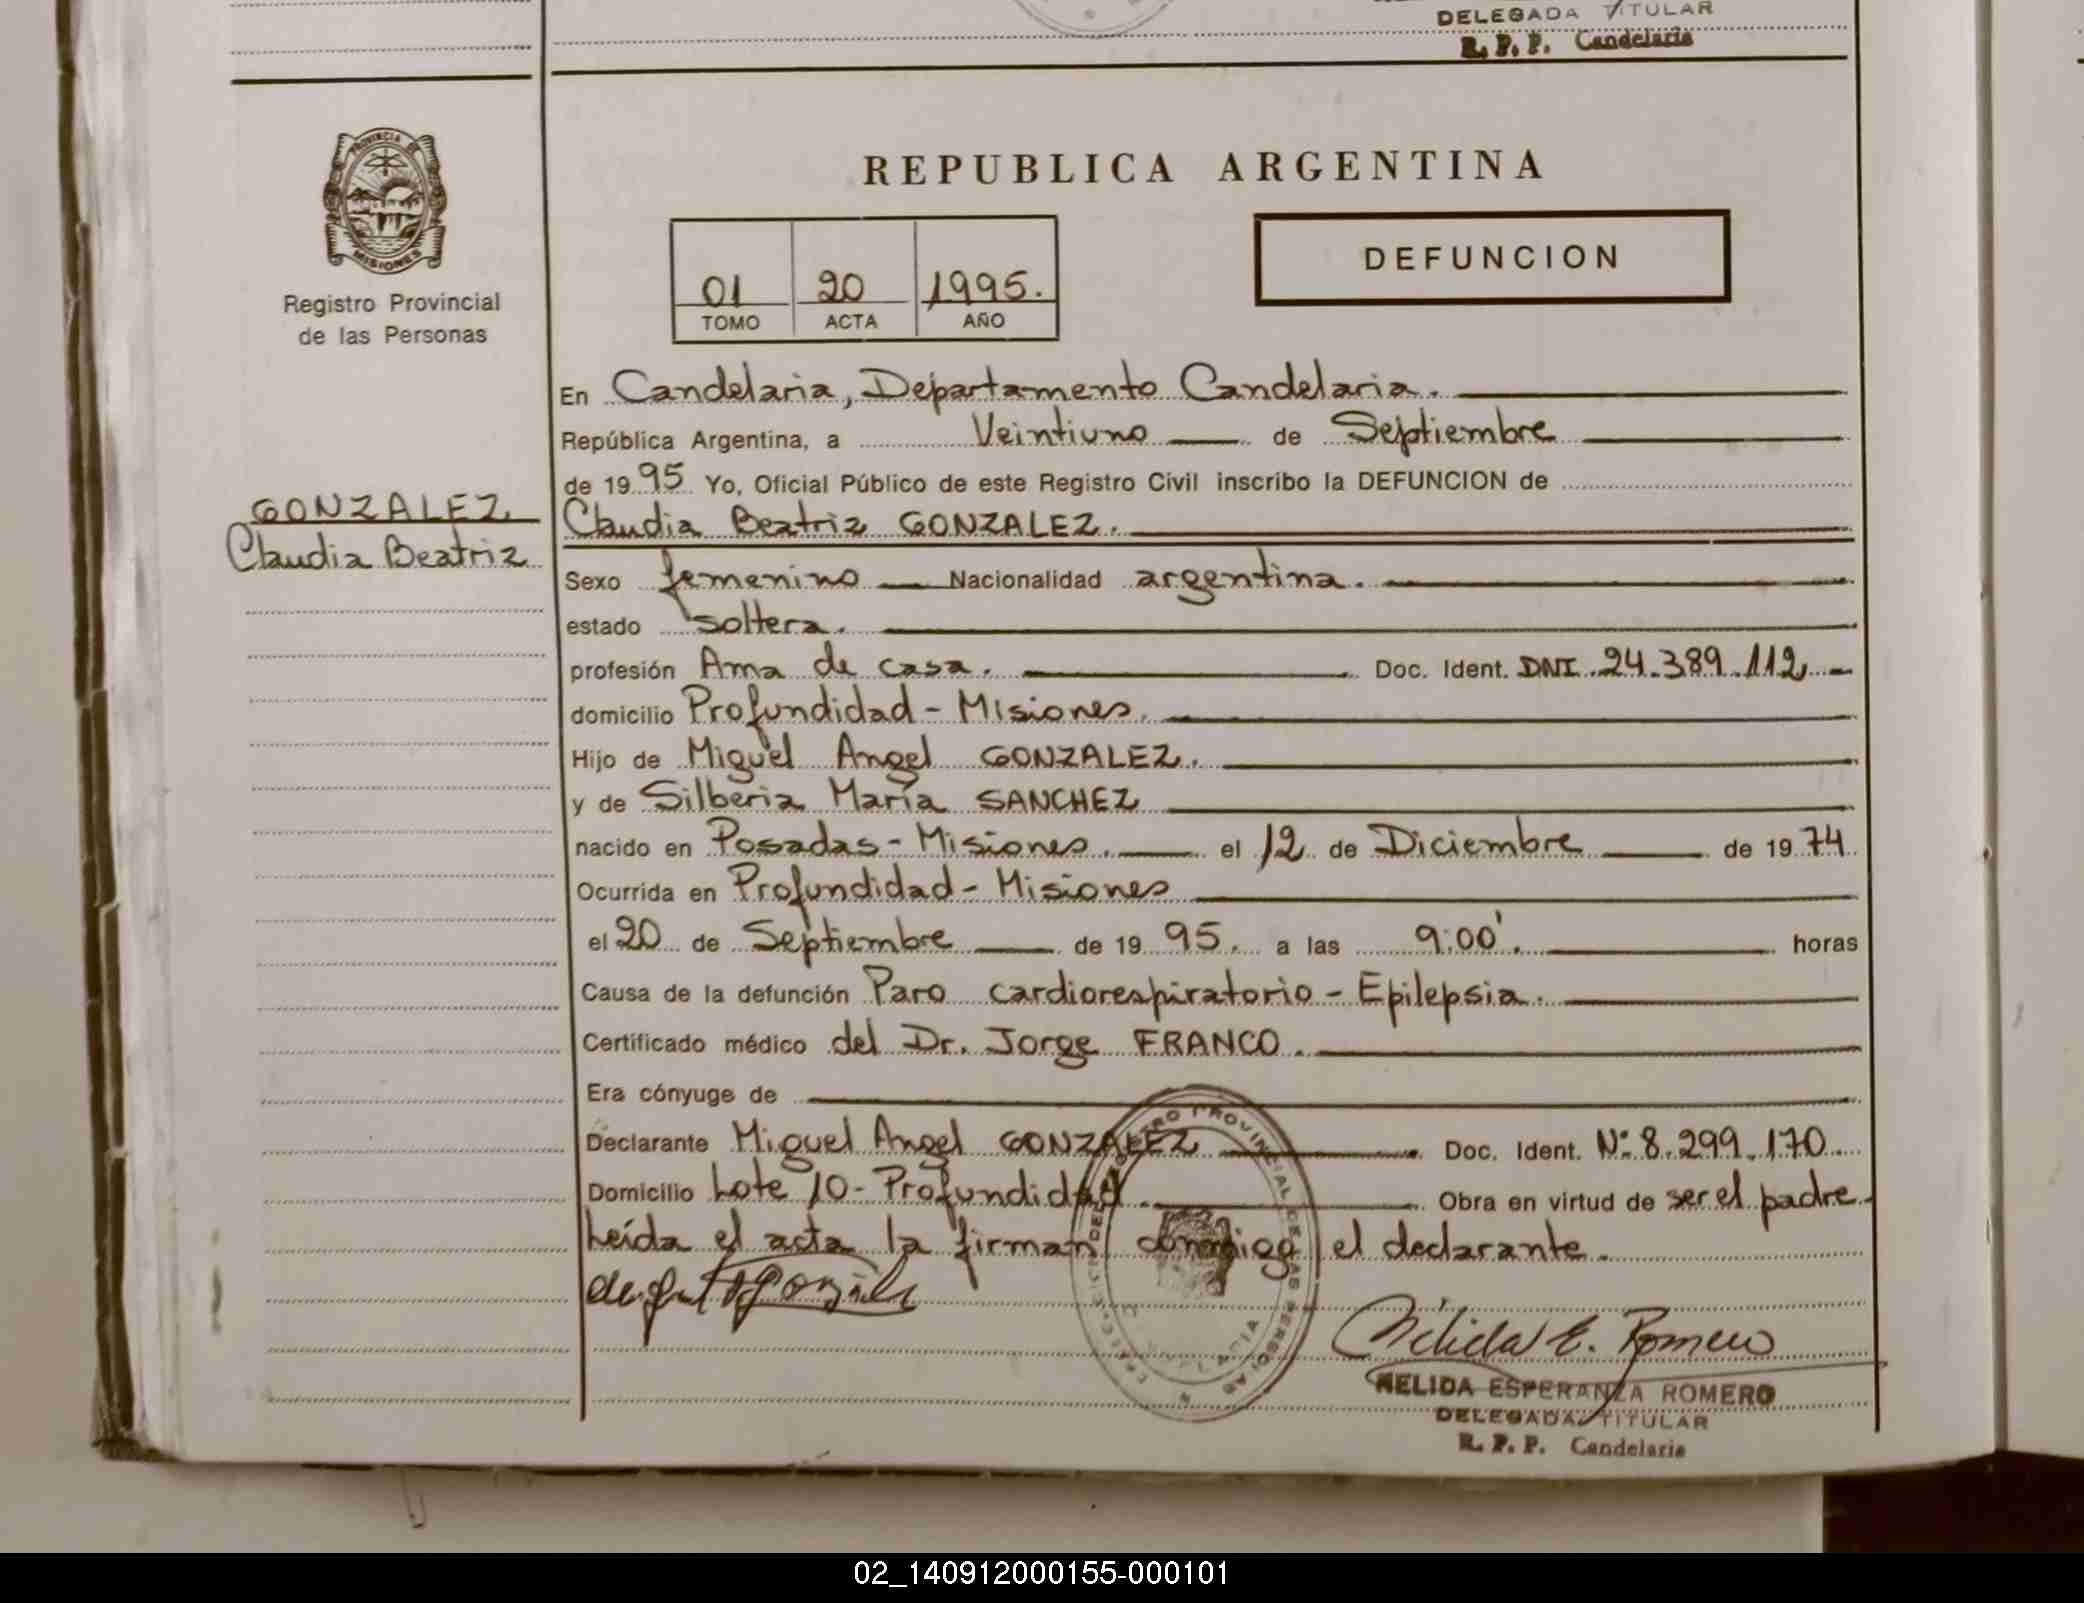 DELEGADA TITULAR
R. P. P. Candelaria
PROVINCIA DE
MISIONES
Registro Provincial
de las Personas
REPUBLICA ARGENTINA
01 20 1995.
TOMO ACTA AÑO
DEFUNCION
GONZALEZ
Claudia Beatriz
En Candelaria, Departamento Candelaria.
República Argentina, a Veintiuno de Septiembre
de 19 95 Yo, Oficial Público de este Registro Civil inscribo la DEFUNCION de
Claudia Beatriz GONZALEZ.
Sexo femenino Nacionalidad argentina.
estado soltera.
profesión Ama de casa. Doc. Ident. DNI 24.389.112
domicilio Profundidad - Misiones.
Hijo de Miguel Angel GONZALEZ.
y de Silberia María SANCHEZ
nacido en Posadas - Misiones. el 12 de Diciembre de 19 74
Ocurrida en Profundidad - Misiones
el 20 de Septiembre de 19 95. a las 9:00'. horas
Causa de la defunción Paro cardiorespiratorio - Epilepsia.
Certificado médico del Dr. Jorge FRANCO.
Era cónyuge de
Declarante Miguel Angel GONZALEZ Doc. Ident. Nº 8.299.170
Domicilio Lote 10 - Profundidad. Obra en virtud de ser el padre
Leída el acta la firman conmigo el declarante.
Nélida E. Romero
NELIDA ESPERANZA ROMERO
DELEGADA TITULAR
R. P. P. Candelaria
02_140912000155-000101